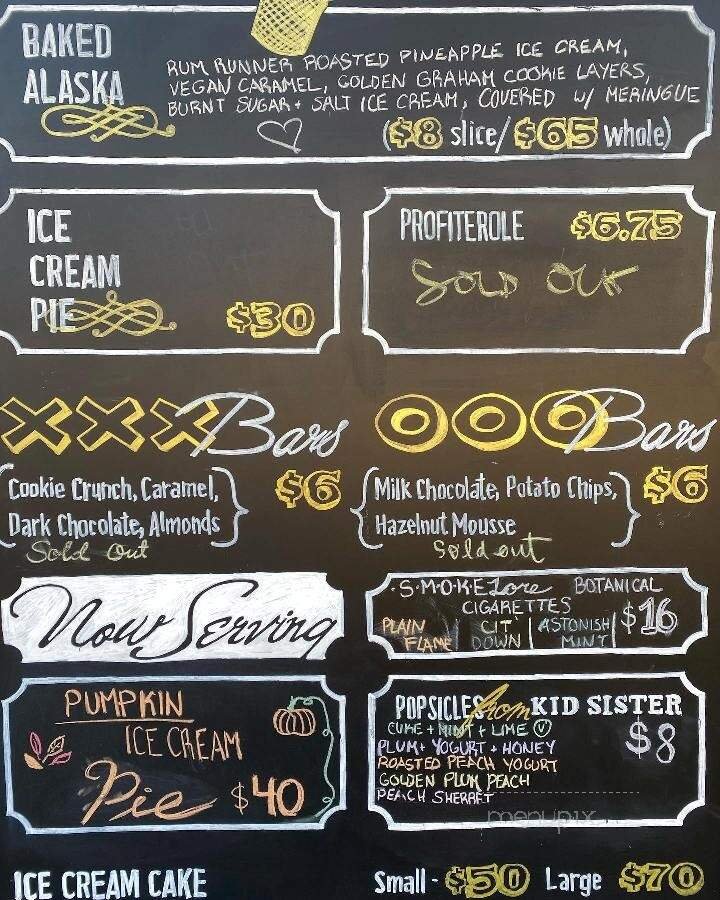 BAKED
ALASKA
RUM RUNNER ROASTED PINEAPPLE ICE CREAM,
VEGAN CARAMEL, GOLDEN GRAHAM COOKIE LAYERS,
BURNT SUGAR + SALT ICE CREAM, COVERED w/ MERINGUE
($8 slice/$65 whole)
ICE
CREAM
PIE
$30
PROFITEROLE $6.75
SOLD OUT
XXX Bars
Cookie Crunch, Caramel,
Dark Chocolate, Almonds
$6
Sold Out
OOO Bars
Milk Chocolate, Potato Chips,
Hazelnut Mousse
$6
Sold out
Now Serving
·S·M·O·K·E Lore BOTANICAL
CIGARETTES
PLAIN
FLAME
CIT'
DOWN
ASTONISH
MINT
$16
PUMPKIN
ICE CREAM
Pie $40
POPSICLES from KID SISTER
CUKE + MINT + LIME V
PLUM + YOGURT + HONEY
ROASTED PEACH YOGURT
GOLDEN PLUM PEACH
PEACH SHERBET
$8
menupix
ICE CREAM CAKE
Small - $50 Large $70